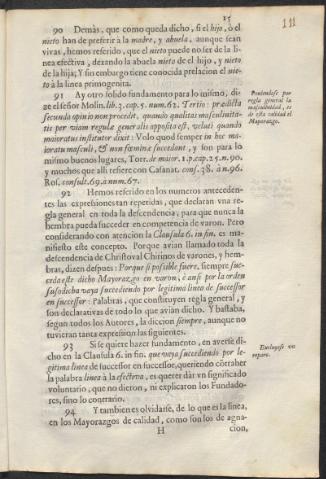 15
111
90 Demàs, que como queda dicho, si el hijo, ò el
nieto han de preferir à la madre, y abuela, aunque sean
vivas, hemos referido, que el nieto puede no ser de la li-
nea efectiva, dexando la abuela nieto de el hijo, y nieto
de la hija; Y sin embargo tiene conocida prelacion el nie-
to à la linea primogenita.
91 Ay otro solido fundamento para lo mismo, di-
ze el señor Molin. lib. 3. cap. 5. num. 62. Tertio: prædicta
secunda opinio non procedit, quando qualitas masculini-
tatis per viam regulæ generalis apposita est, veluti quando
maioratus institutor dixit: Volo quod semper in hoc ma-
ioratu masculi, & non fœminæ succedant, y son para lo
mismo buenos lugares, Torr. de maior. 1. p. cap. 25. n. 90.
y muchos que alli refiere con Casanat. cons. 38. à n. 96.
Ros. consult. 69. à num. 67.
Poniendose por
regla general la
masculinidad, es
de esta calidad el
Mayorazgo.
92 Hemos referido en los numeros anteceden-
tes las expresiones tan repetidas, que declaran vna re-
gla general en toda la descendencia, para que nunca la
hembra pueda succeder en competencia de varon. Pero
considerando con atencion la Clausula 6. in fin. es ma-
nifiesto este concepto. Porque avian llamado toda la
descendencia de Christoval Chirinos de varones, y hem-
bras, dizen despues: Porque si posible fuere, siempre suc-
ceda este dicho Mayorazgo en varon, è ansi por la orden
susodicha vaya succediendo por legitima linea de successor
en successor: Palabras, que constituyen regla general, y
son declarativas de todo lo que avian dicho. Y bastaba,
segun todos los Autores, la diccion siempre, aunque no
tuvieran tanta expresion las siguientes.
93 Si se quiere hazer fundamento, en averse di-
cho en la Clausula 6. in fin. que vaya succediendo por le-
gitima linea de successor en successor, queriendo côtraher
la palabra linea à la efectiva, es querer dàr vn significado
voluntario, que no dieron, ni explicaron los Fundado-
res, sino lo contrario.
Excluyese vn
reparo.
94 Y tambien es olvidarse, de lo que es la linea,
en los Mayorazgos de calidad, como son los de agna-
H cion,